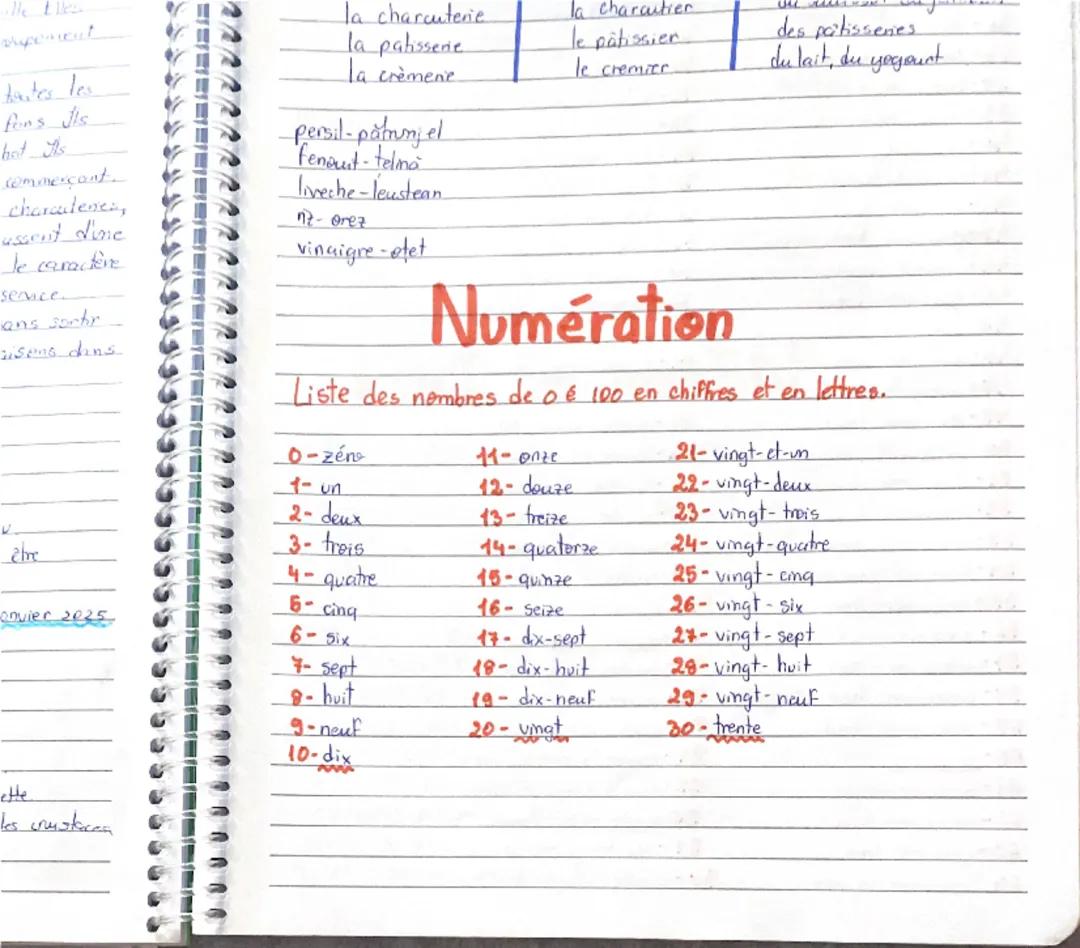 toutes les
commerçant.
le caractère
service.
ans sortir
être
2025
ette
les crustaces
la charcuterie la charcutier
la patisserie le pâtissier des pâtisseries
la crèmerie le cremier du lait, du yogourt
persil-pătrunjel
fenouit-telină
liveche-leuștean
riz-orez
vinaigre-oțet
Numération
Liste des nombres de 0 é 100 en chiffres et en lettres.
0-zéro 11-onze 21-vingt-et-un
1-un 12-douze 22-vingt-deux
2-deux 13-treize 23-vingt-trois
3-trois 14-quatorze 24-vingt-quatre
4-quatre 15-quinze 25-vingt-cinq
5-cinq 16-seize 26-vingt-six
6-six 17-dix-sept 27-vingt-sept
7-sept 18-dix-huit 28-vingt-huit
8-huit 19-dix-neuf 29-vingt-neuf
9-neuf 20-vingt 30-trente
10-dix